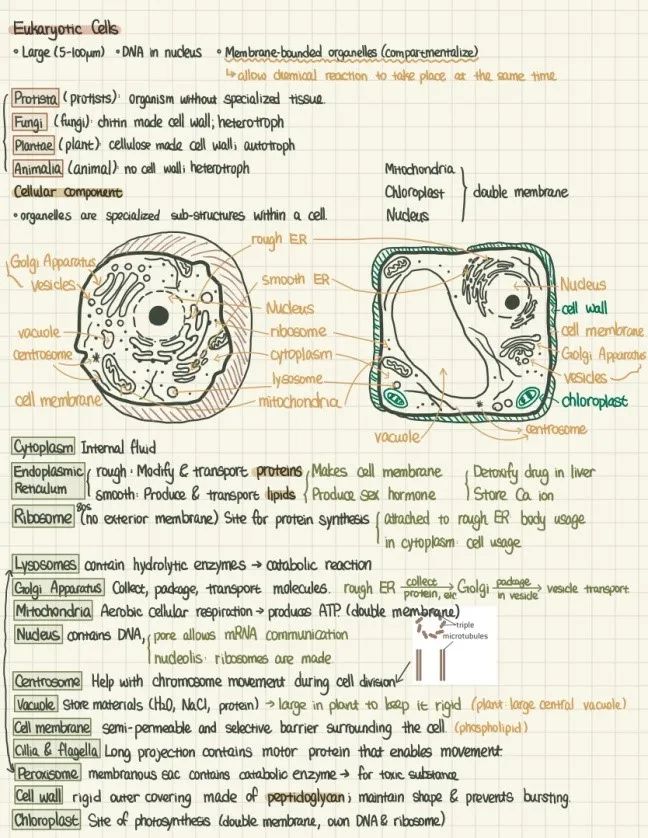 Eukaryotic Cells
• Large (5-100µm) • DNA in nucleus • Membrane-bounded organelles (compartmentalize)
↳ allow chemical reaction to take place at the same time
Protista (protists): organism without specialized tissue.
Fungi (fungi): chitin made cell wall; heterotroph
Plantae (plant): cellulose made cell wall; autotroph
Animalia (animal): no cell wall; heterotroph
Mitochondria
Chloroplast
Nucleus
double membrane
Cellular component
• organelles are specialized sub-structures within a cell.
Golgi Apparatus
vesicles
vacuole
centrosome
cell membrane
rough ER
smooth ER
Nucleus
ribosome
cytoplasm
lysosome
mitochondria
vacuole
Nucleus
cell wall
cell membrane
Golgi Apparatus
vesicles
chloroplast
centrosome
Cytoplasm Internal fluid
Endoplasmic Reticulum
rough: Modify & transport proteins
smooth: Produce & transport lipids
Makes cell membrane
Produce sex hormone
Detoxify drug in liver
Store Ca ion
Ribosome 80s (no exterior membrane) Site for protein synthesis
attached to rough ER: body usage
in cytoplasm: cell usage
Lysosomes contain hydrolytic enzymes → catabolic reaction
Golgi Apparatus Collect, package, transport molecules. rough ER collect protein, etc → Golgi package in vesicle → vesicle transport
Mitochondria Aerobic cellular respiration → produces ATP. (double membrane)
Nucleus contains DNA,
pore allows mRNA communication
nucleolis: ribosomes are made
triple
microtubules
Centrosome Help with chromosome movement during cell division
Vacuole Store materials (H₂O, NaCl, protein) → large in plant to keep it rigid (plant large central vacuole)
Cell membrane semi-permeable and selective barrier surrounding the cell (phospholipid)
Cillia & flagella Long projection contains motor protein that enables movement.
Peroxisome membranous sac contains catabolic enzyme → for toxic substance
Cell wall rigid outer covering made of peptidoglycan; maintain shape & prevents bursting.
Chloroplast Site of photosynthesis (double membrane, own DNA & ribosome)